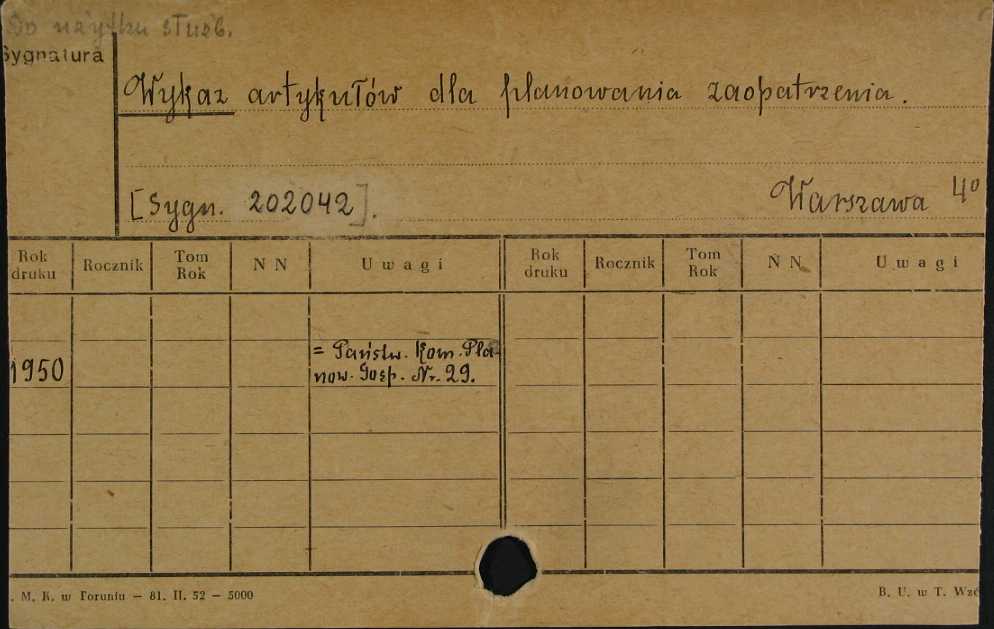 Do użytku służb.
Sygnatura
Wykaz artykułów dla planowania zaopatrzenia.
[Sygn. 202042].
Warszawa 4º
Rok druku Rocznik Tom Rok N N Uwagi Rok druku Rocznik Tom Rok N N Uwagi
1950
= Państw. Kom. Pla-
now. Gosp. Nr. 29.
. M. K. w Toruniu — 81. II. 52 — 5000
B. U. w T. Wzó